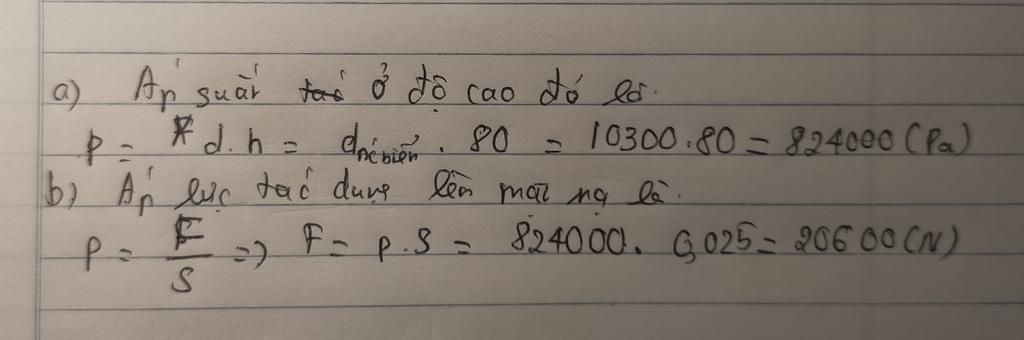 a) Áp suất ở độ cao đó là.
p = d.h = dnc biển . 80 = 10300.80 = 824000 (Pa)
b) Áp lực tác dụng lên mặt nạ là.
p = F/S => F = p.S = 824000. 0,025 = 20600 (N)